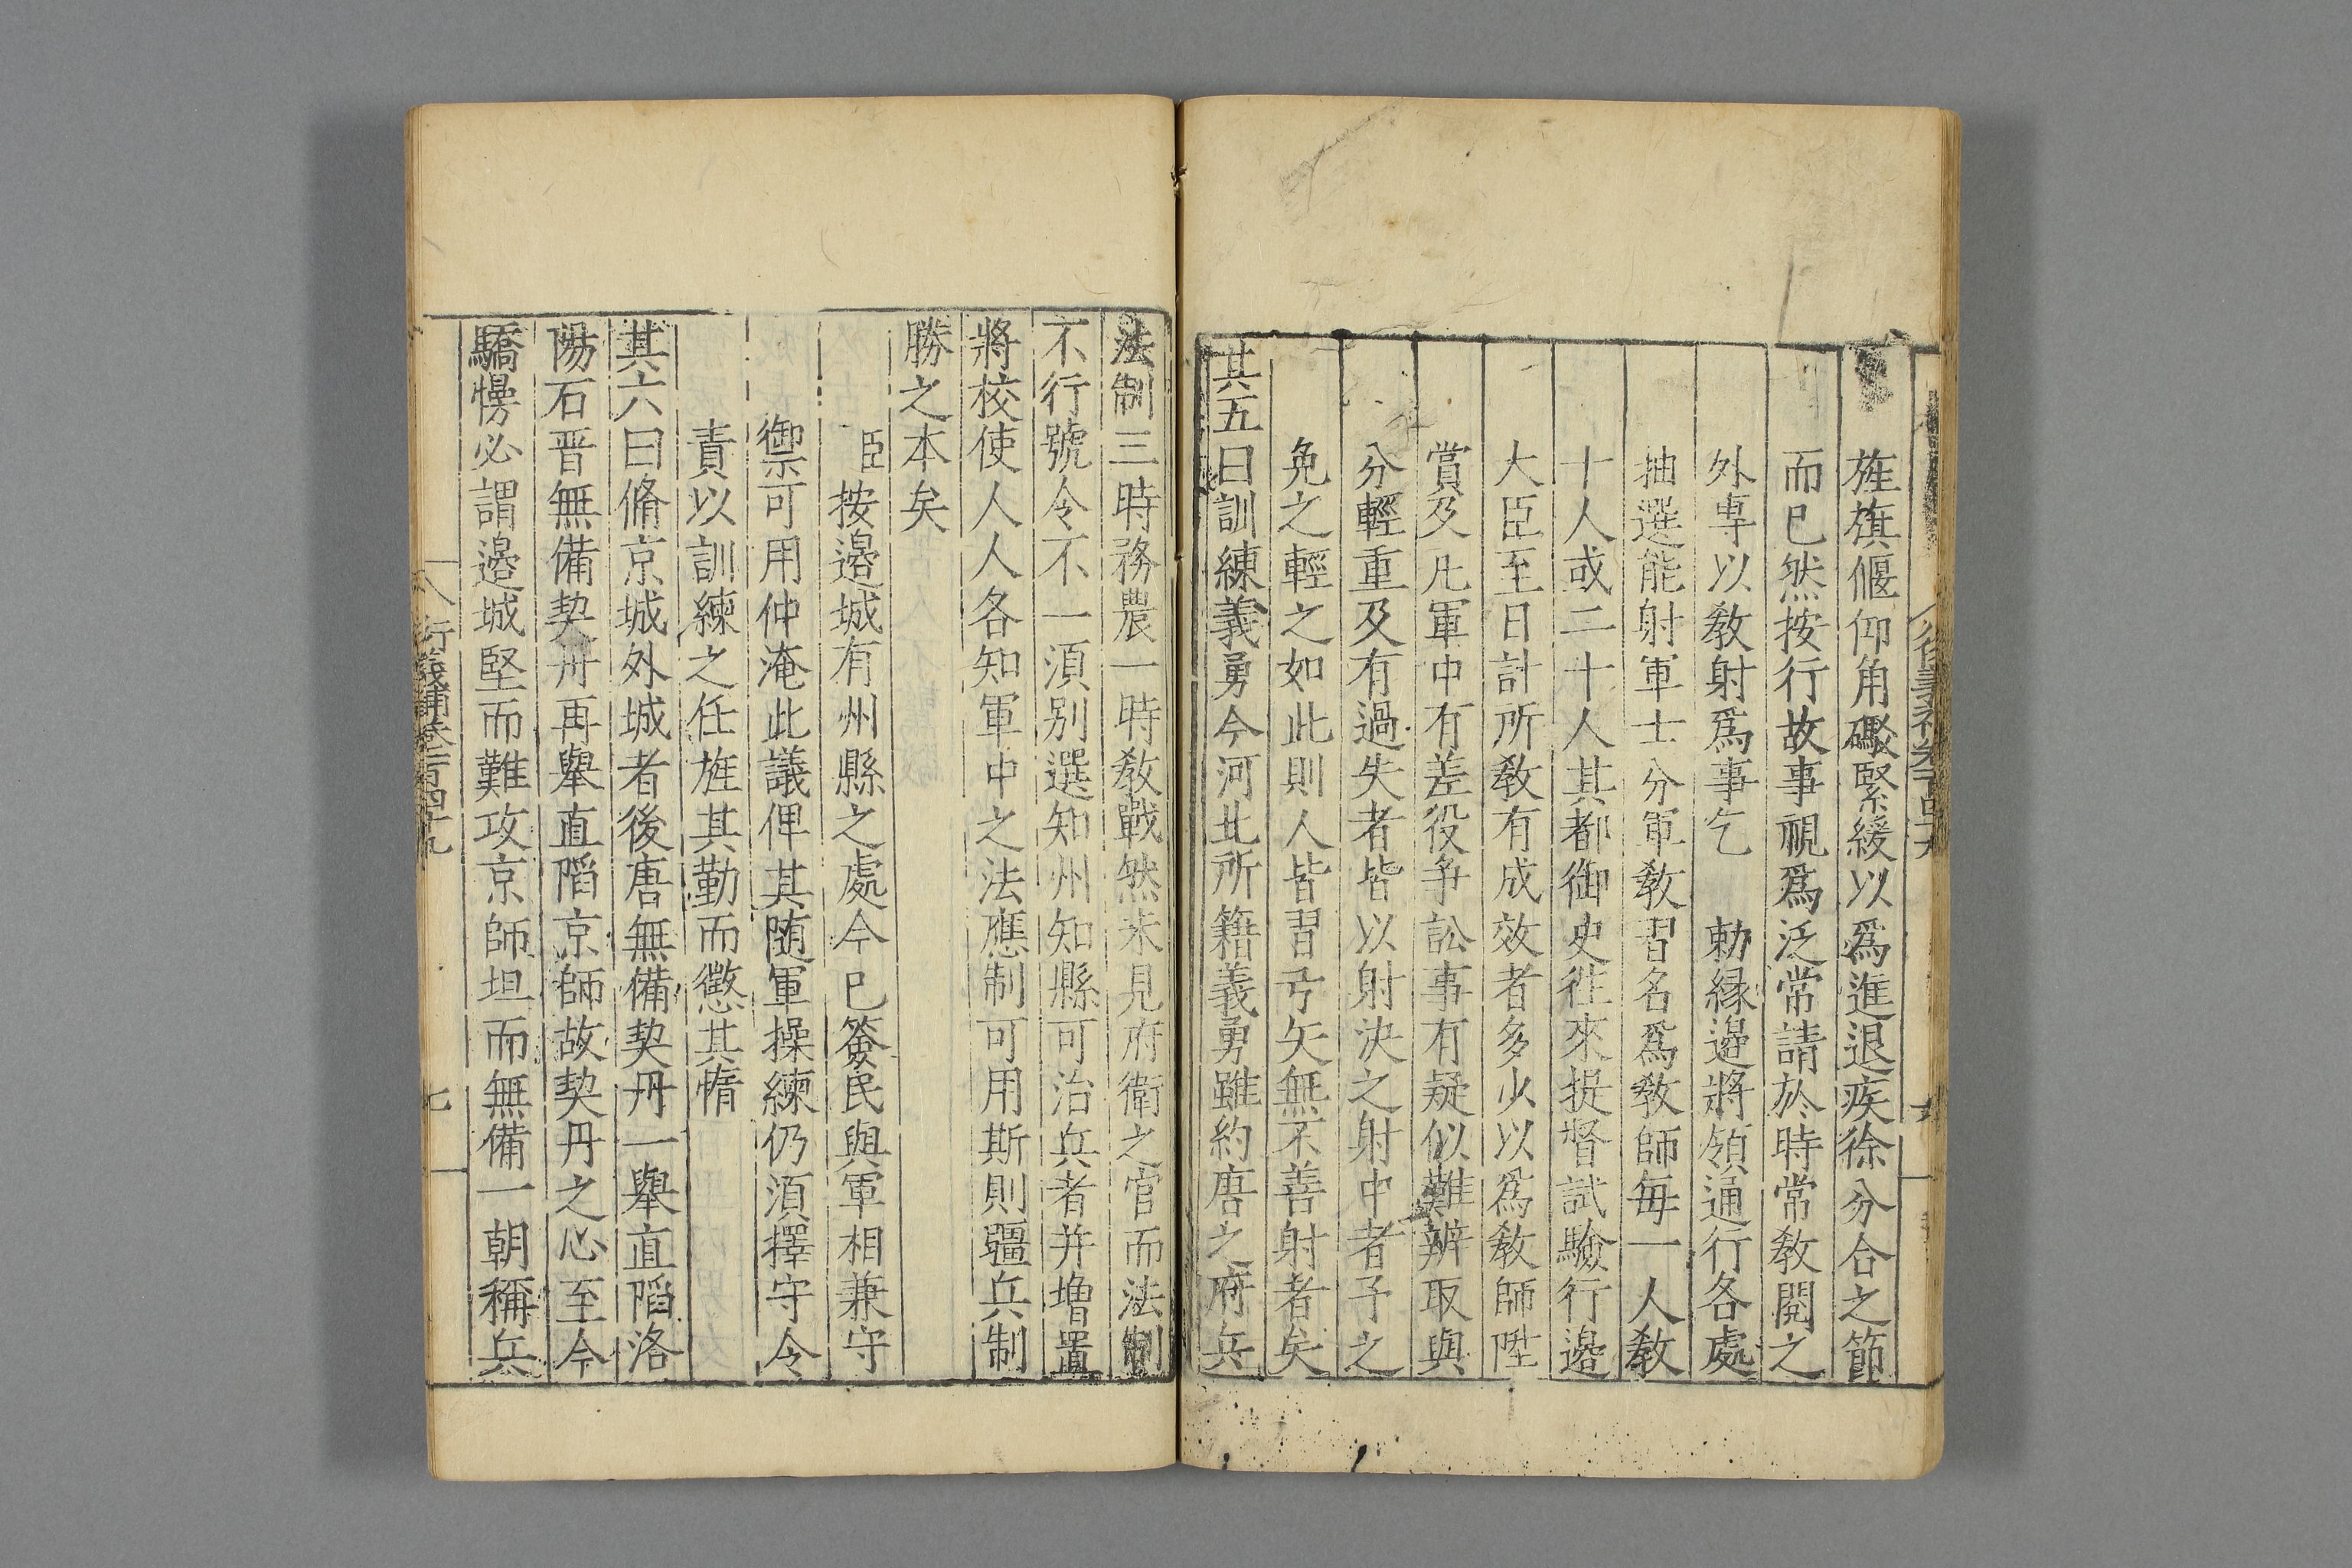 旌旗偃仰角礟緊緩以爲進退疾徐分合之節
而已然按行故事視爲泛常請於時常敎閱之
外專以敎射爲事乞　勅緣邊將領通行各處
抽選能射軍士分軍敎習名爲敎師每一人敎
十人或二十人其都御史往來提督試驗行邊
大臣至日計所敎有成效者多少以爲敎師陞
賞及凡軍中有差役爭訟事有疑似難辨取與
分輕重及有過失者皆以射決之射中者予之
免之輕之如此則人皆習弓矢無不善射者矣
其五曰訓練義勇今河北所籍義勇雖約唐之府兵
法制三時務農一時敎戰然未見府衛之官而法制
不行號令不一須别選知州知縣可治兵者并增置
將校使人人各知軍中之法應制可用斯則疆兵制
勝之本矣
臣按邊城有州縣之處今已簽民與軍相兼守
禦可用仲淹此議俾其随軍操練仍須擇守令
責以訓練之任旌其勤而懲其惰
其六曰脩京城外城者後唐無備契丹一舉直陷洛
陽石晋無備契丹再舉直陷京師故契丹之心至今
驕慢必謂邊城堅而難攻京師坦而無備一朝稱兵
衍義補卷一百四十九
七